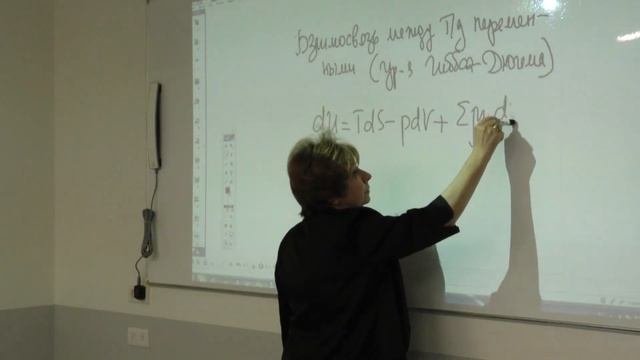 Взаимосвязь между ТД перемен-
ными (ур-я Гиббса-Дюгема)
dU = TdS - pdV + Σμ d